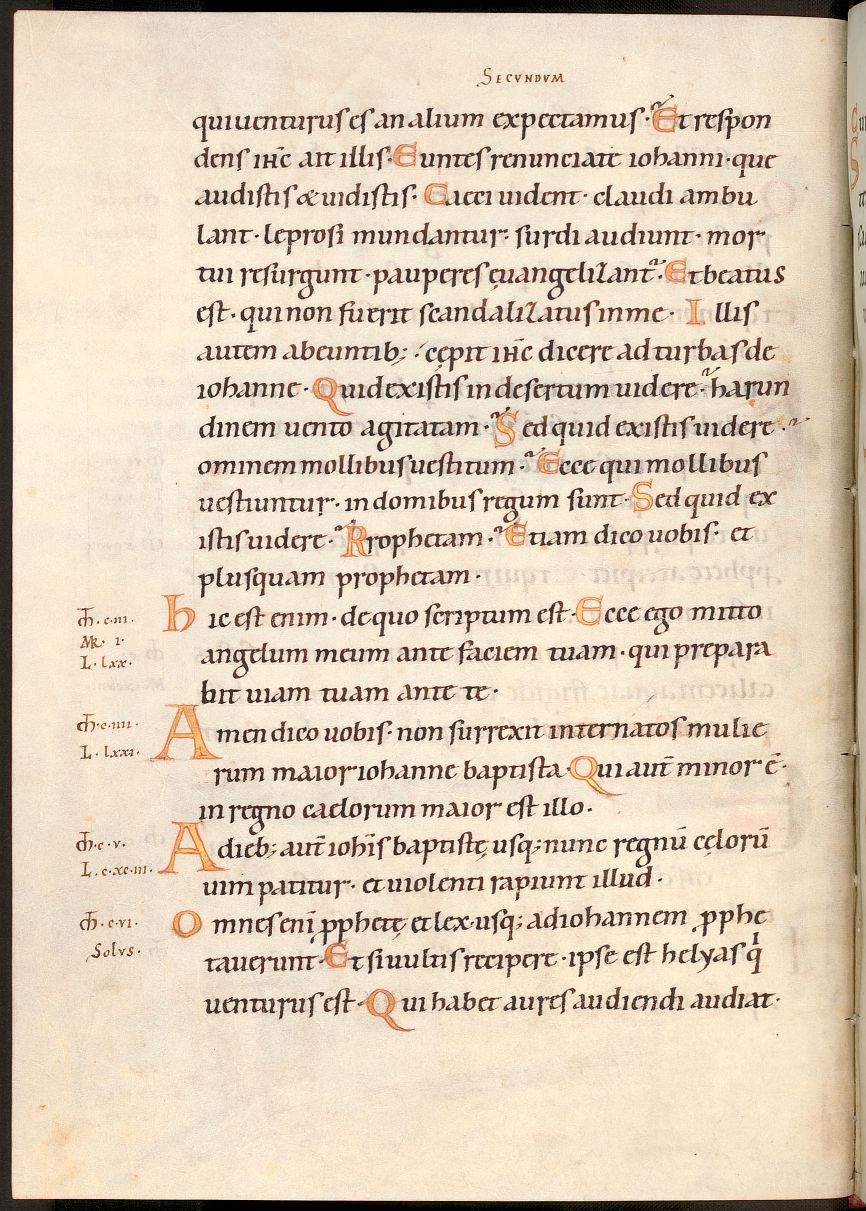 SECVNDVM
qui uenturus es an alium expectamus. Et respon
dens ihc̄ ait illis. Euntes renunciate iohanni. que
audistis & uidistis. Caeci uident. claudi ambu
lant. leprosi mundantur. surdi audiunt. mor
tui resurgunt. pauperes ęuangelizant̄. Et beatus
est. qui non fuerit scandalizatus in me. Illis
autem abeuntib; cępit ihc̄ dicere ad turbas de
iohanne. Quid existis in desertum uidere. harun
dinem uento agitatam. Sed quid existis uidere.
ominem mollibus uestitum. Ecce qui mollibus
uestiuntur. in domibus regum sunt. Sed quid ex
istis uidere. Prophetam. Etiam dico uobis. et
plusquam prophetam.
M̄. c. III.
hic est enim. de quo scriptum est. Ecce ego mitto
MR. I.
L. lxx.
angelum meum ante faciem tuam. qui prepara
bit uiam tuam ante te.
M̄. c. IIII.
Amen dico uobis. non surrexit inter natos mulie
L. lxxI.
rum maior iohanne baptista. Qui aut̄ minor ē.
in regno caelorum maior est illo.
M̄. c. V.
A dieb; aut̄ ioh̄is baptistę usq; nunc regnū cęlorū
L. c. xc. III.
uim patitur. et uiolenti rapiunt illud.
M̄. c. VI.
Omnes eni̅ ꝓphetę et lex. usq; ad iohannem ꝓphe
Solus.
tauerunt. Et si uultis recipere. ipse est helyas qͥ
uenturus est. Qui habet aures audiendi audiat.